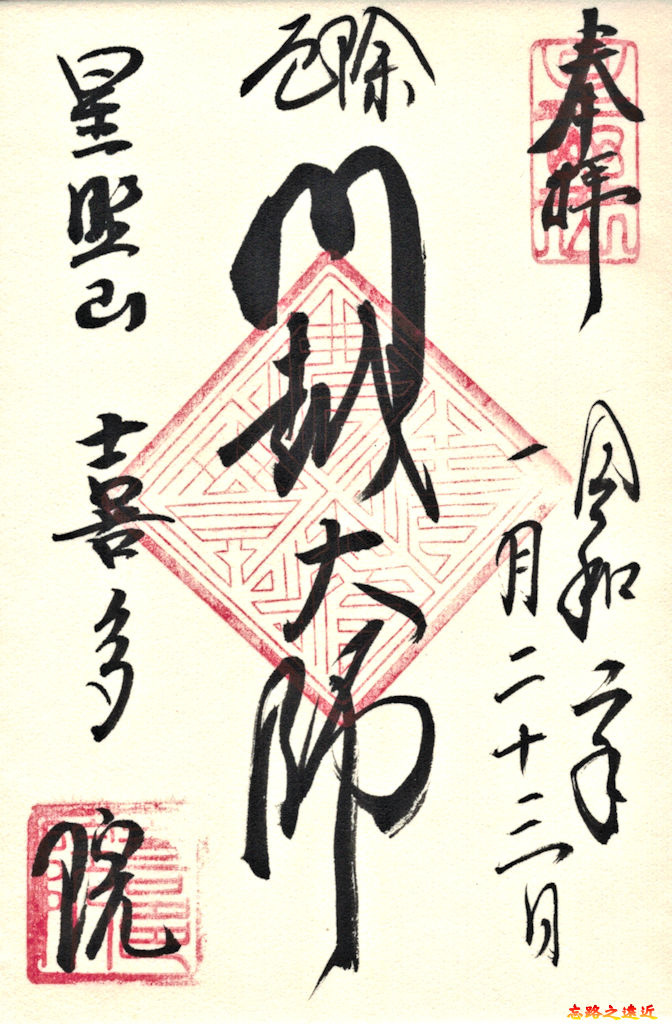 奉拝
令和二年
一月二十三日
厄除
川越大師
星野山
喜多
院
忘路之遠近